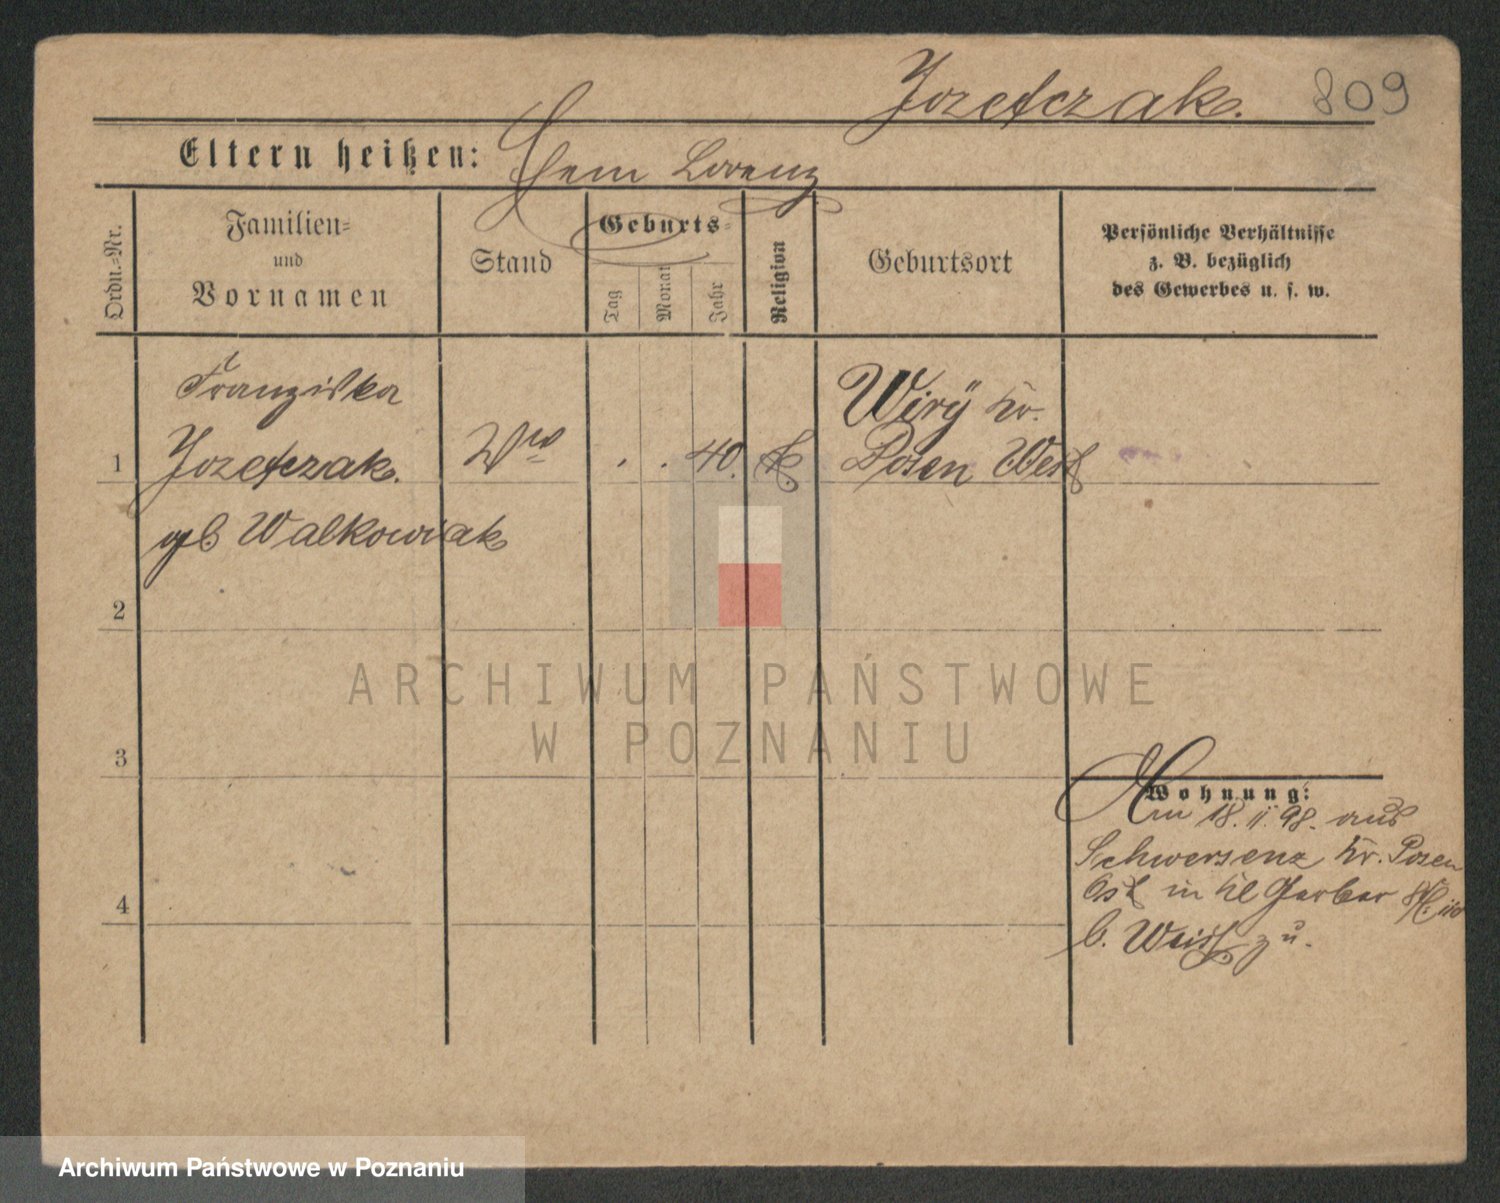 Jozefczak. 809
Eltern heißen: Lorenz
Ordn.=Nr.
Familien=
und
Vornamen
Stand
Geburts=
Tag
Monat
Jahr
Religion
Geburtsort
Persönliche Verhältnisse
z. B. bezüglich
des Gewerbes u. s. w.
Franziska
Wirÿ Kr.
1 Jozefczak. Ww . . 40. K. Posen West
geb Walkowiak
2
3
4
ARCHIWUM PAŃSTWOWE
W POZNANIU
Wohnung:
Am 18. II. 98. aus
Schwersenz Kr. Posen
Ost in Kl Gerber
b. Weiss zu.
Archiwum Państwowe w Poznaniu